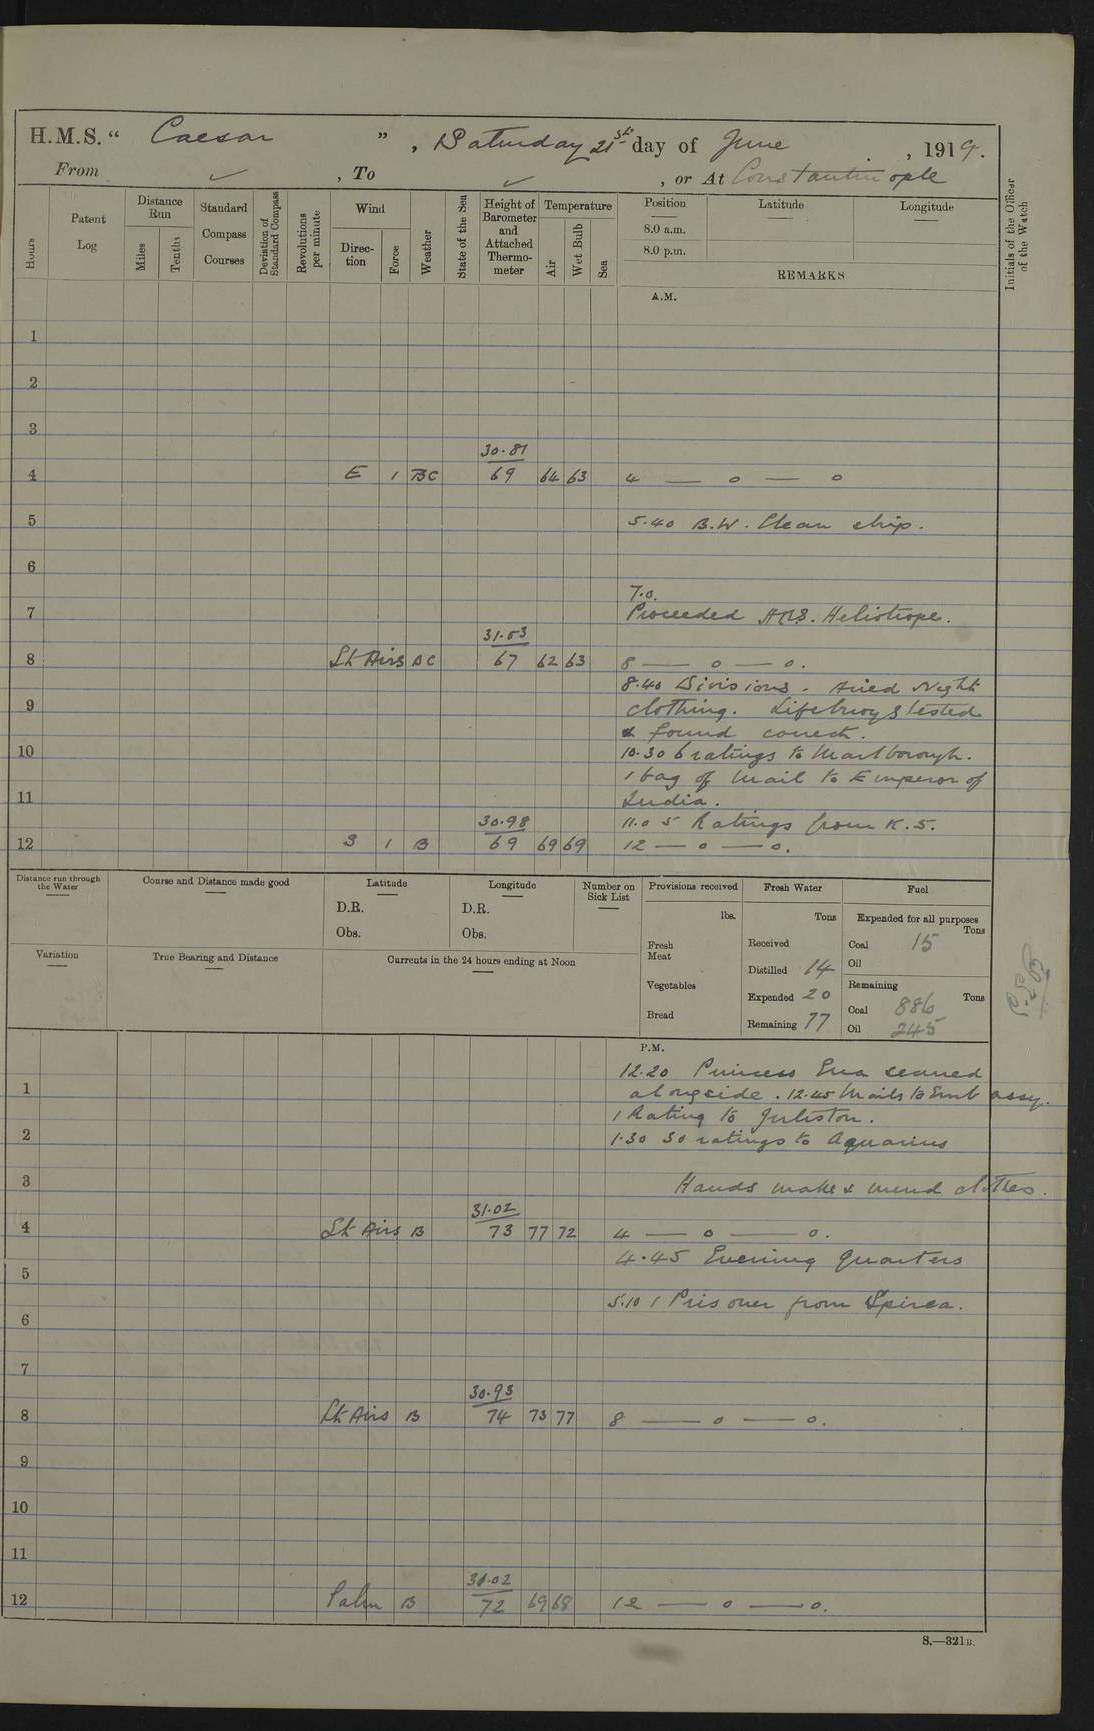 H.M.S. “ Caesar ” , Saturday 21st day of June , 1919.
From ✓ , To ✓ , or At Constantinople
Hours
Patent Log
Distance Run
Miles
Tenths
Standard Compass Courses
Deviation of Standard Compass
Revolutions per minute
Wind
Direc-tion
Force
Weather
State of the Sea
Height of Barometer and Attached Thermo-meter
Temperature
Air
Wet Bulb
Sea
Position Latitude Longitude
8.0 a.m.
8.0 p.m.
REMARKS
Initials of the Officer of the Watch
A.M.
1
2
3
30.81
4 E 1 BC 69 64 63 4 — o — o
5 5.40 B.W. Clean ship.
6
7.0.
7 Proceeded HMS. Heliotrope.
31.03
8 Lt Airs BC 67 62 63 8 — o — o.
8.40 Divisions. Aired Night
9 clothing. Lifebuoys tested
& found correct.
10 10.30 6 ratings to Marlborough.
1 bag of Mail to Emperor of
11 India.
30.98 11.0 5 Ratings from K.5.
12 S 1 B 69 69 69 12 — o — o.
Distance run through the Water
Course and Distance made good
Latitude
D.R.
Obs.
Longitude
D.R.
Obs.
Number on Sick List
Provisions received
lbs.
Fresh Meat
Vegetables
Bread
Fresh Water
Tons
Received
Distilled 14
Expended 20
Remaining 77
Fuel
Expended for all purposes
Tons
Coal 15
Oil
Remaining
Tons
Coal 886
Oil 245
Variation
True Bearing and Distance
Currents in the 24 hours ending at Noon
P.M.
12.20 Princess Ena secured
1 alongside. 12.45 Mails to Embassy.
1 Rating to
2 1.30 30 ratings to Aquarius
3 Hands make & mend clothes.
31.02
4 Lt Airs B 73 77 72 4 — o — o.
4.45 Evening Quarters
5
5.10 1 Prisoner from Spirea.
6
7
30.93
8 Lt Airs B 74 73 77 8 — o — o.
9
10
11
31.02
12 Calm B 72 69 68 12 — o — o.
S.—321B.